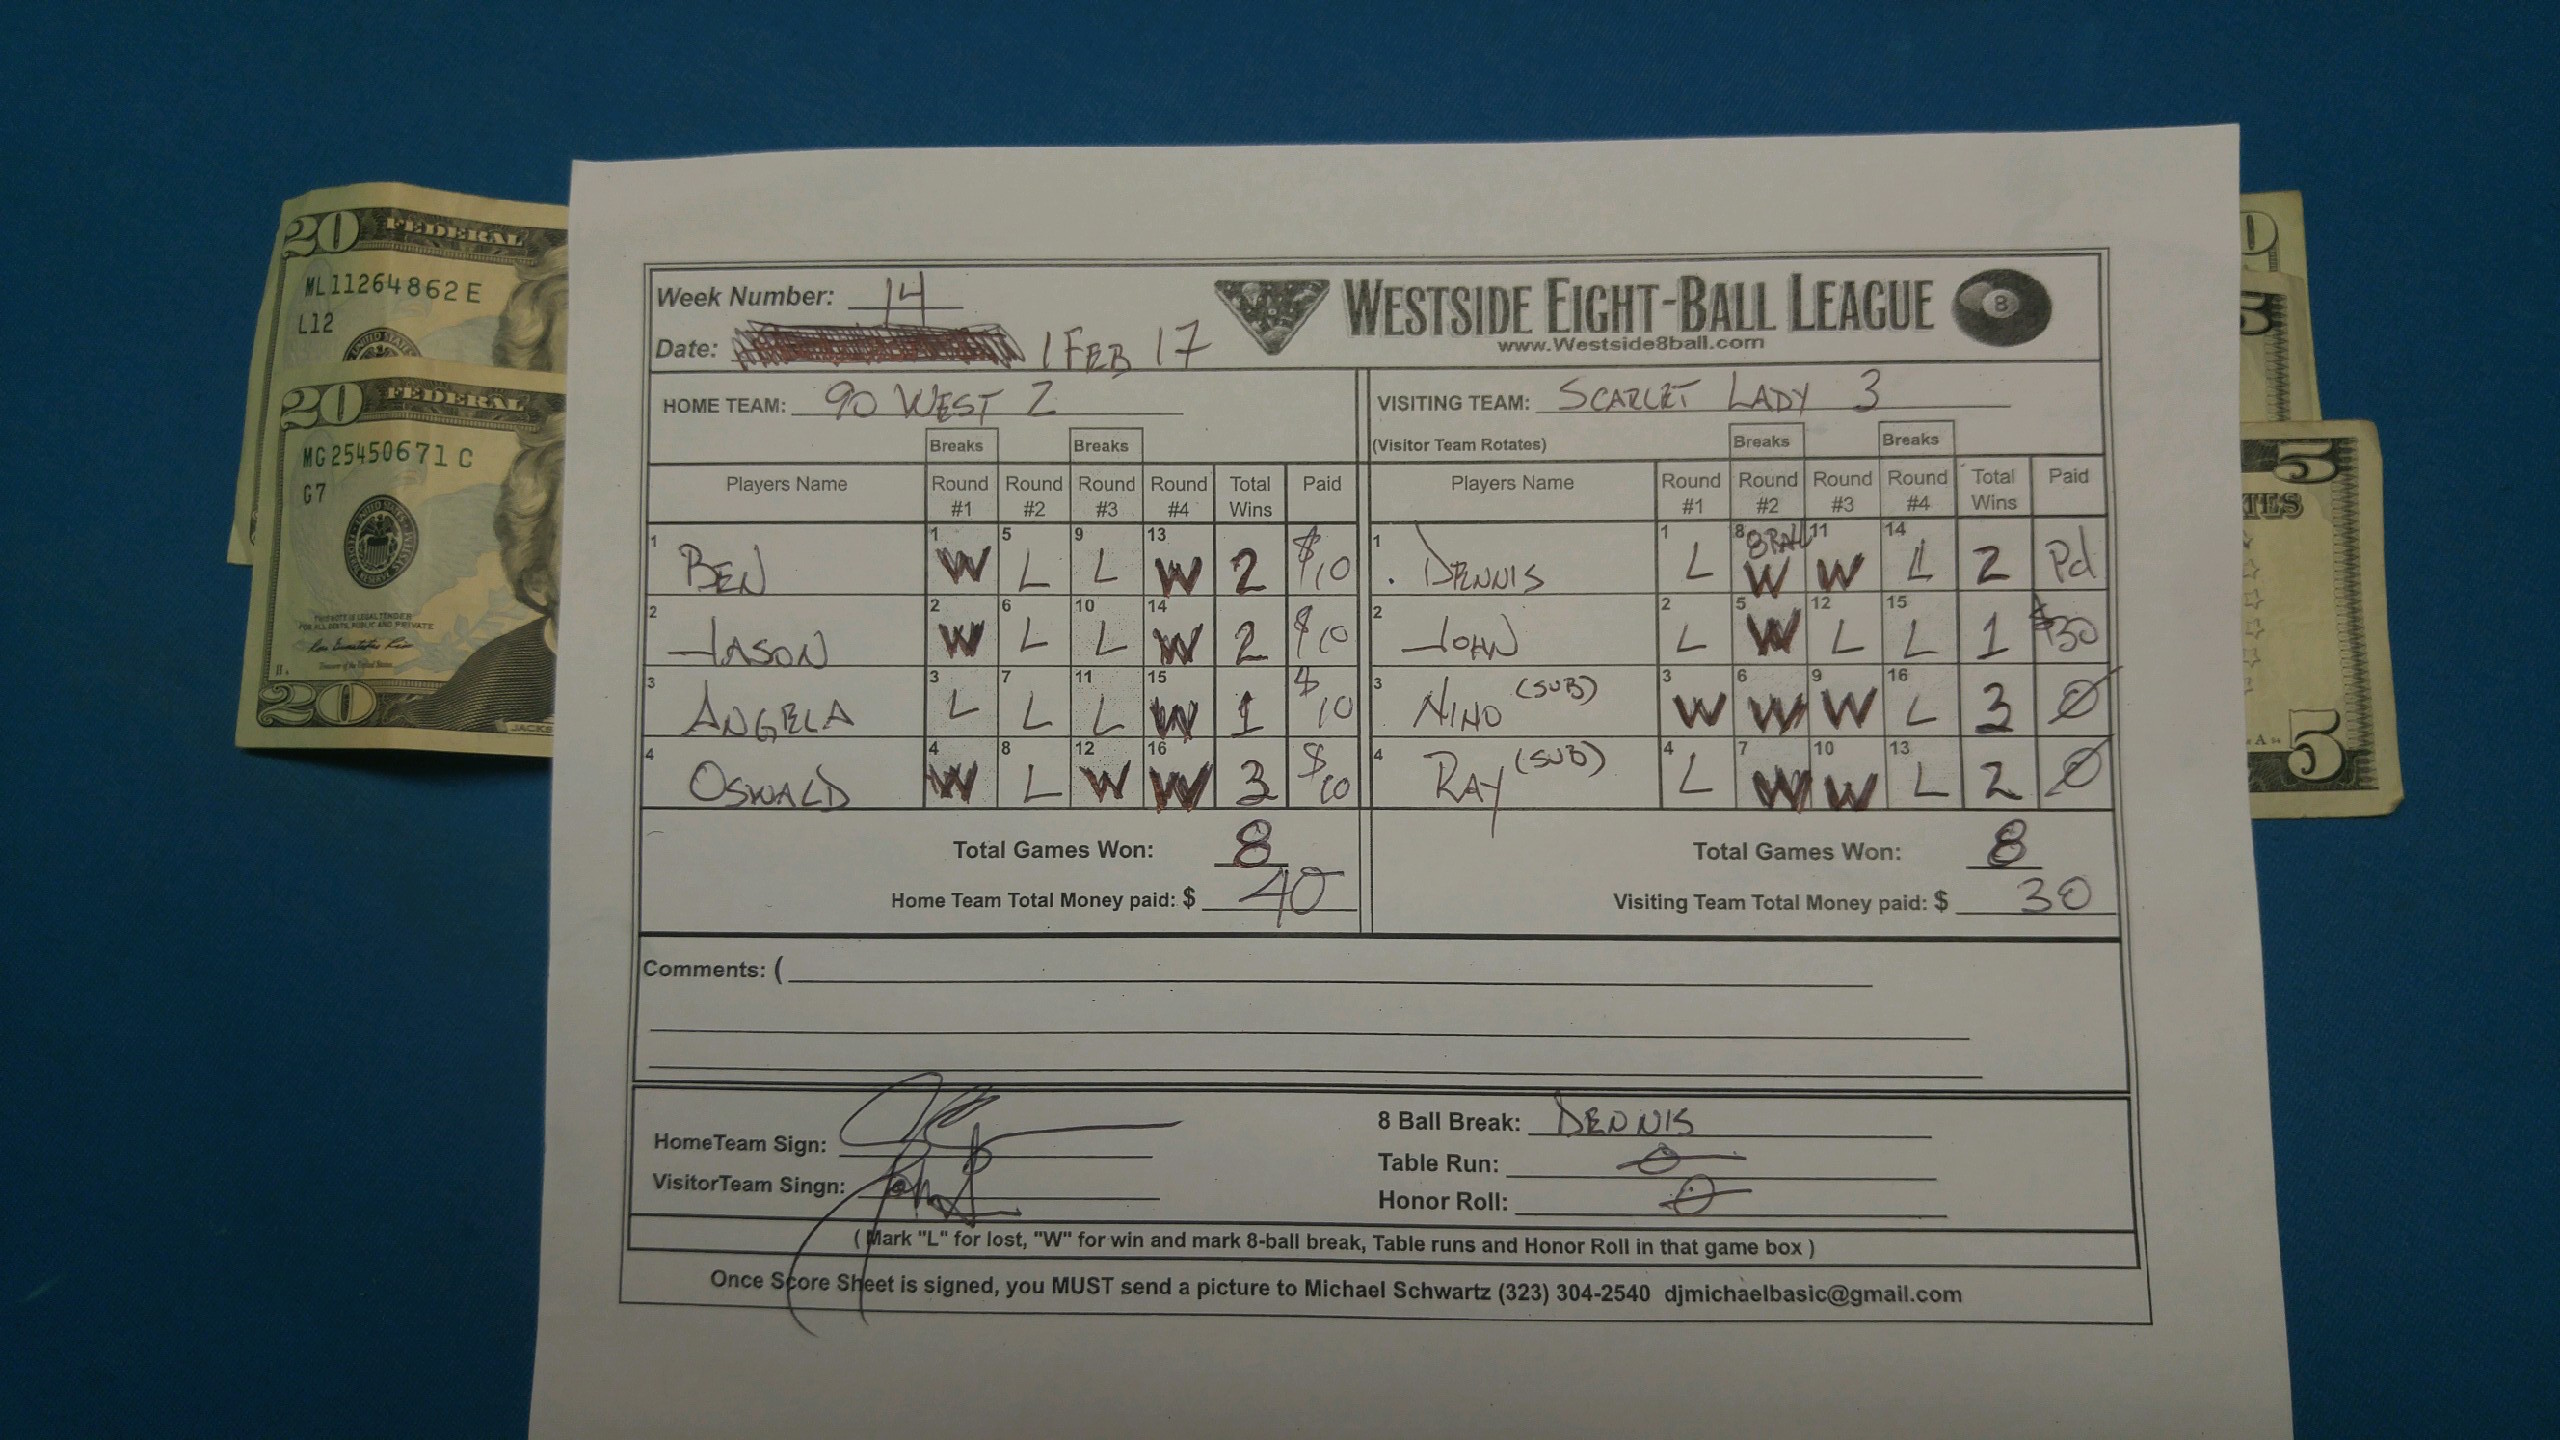 20 FEDERAL
ML11264862E
L12
20 FEDERAL
MG25450671C
G7
THIS NOTE IS LEGAL TENDER
FOR ALL DEBTS, PUBLIC AND PRIVATE
Treasurer of the United States
20
JACKS
5
5
TES
5
Week Number: 14
Date: 1 FEB 17
WESTSIDE EIGHT-BALL LEAGUE
8
www.Westside8ball.com
HOME TEAM: 90 WEST 2
VISITING TEAM: SCARLET LADY 3
(Visitor Team Rotates)
Breaks Breaks Breaks Breaks
Players Name Round #1 Round #2 Round #3 Round #4 Total Wins Paid Players Name Round #1 Round #2 Round #3 Round #4 Total Wins Paid
1 BEN 1 W 5 L 9 L 13 W 2 $10 1 DENNIS 1 L 8 8BALL W 11 W 14 L 2 Pd
2 JASON 2 W 6 L 10 L 14 W 2 $10 2 JOHN 2 L 5 W 12 L 15 L 1 $30
3 ANGELA 3 L 7 L 11 L 15 W 1 $10 3 NINO (SUB) 3 W 6 W 9 W 16 L 3 Ø
4 OSWALD 4 W 8 L 12 W 16 W 3 $10 4 RAY (SUB) 4 L 7 W 10 W 13 L 2 Ø
Total Games Won: 8 Total Games Won: 8
Home Team Total Money paid: $ 40 Visiting Team Total Money paid: $ 30
Comments: (
HomeTeam Sign:
VisitorTeam Singn:
8 Ball Break: DENNIS
Table Run: Ø
Honor Roll: Ø
( Mark "L" for lost, "W" for win and mark 8-ball break, Table runs and Honor Roll in that game box )
Once Score Sheet is signed, you MUST send a picture to Michael Schwartz (323) 304-2540 djmichaelbasic@gmail.com